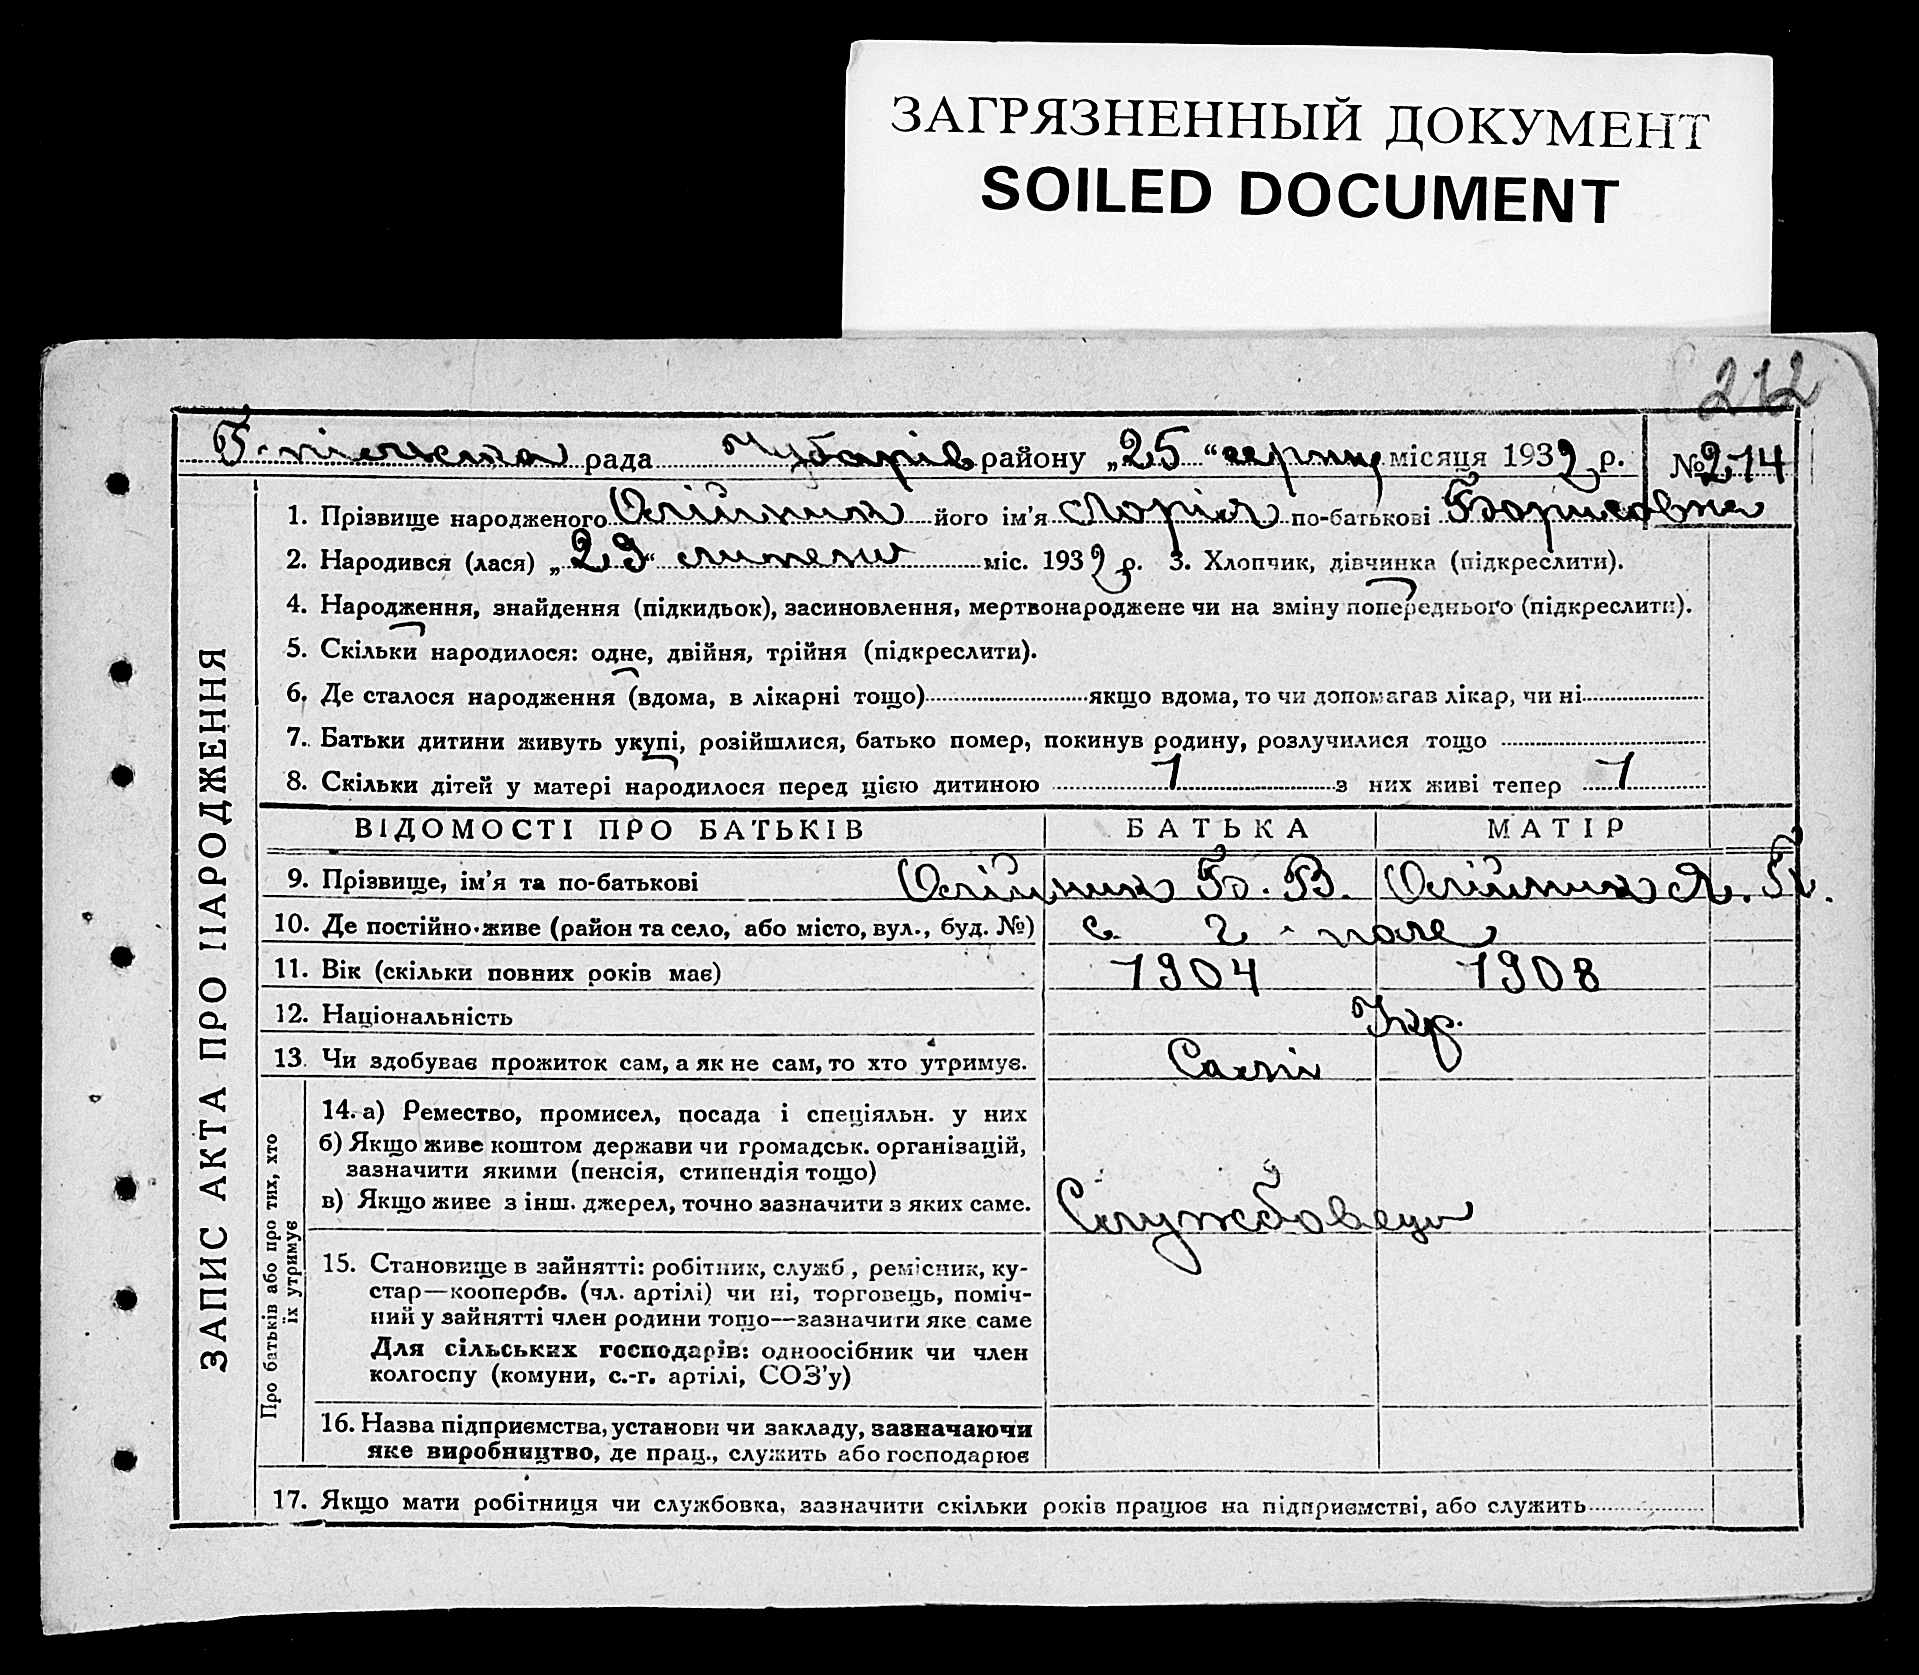 ЗАГРЯЗНЕННЫЙ ДОКУМЕНТ
SOILED DOCUMENT
212
рада Чубарів району „25“ серпня місяця 1932 р. № 214
ЗАПИС АКТА ПРО НАРОДЖЕННЯ
1. Прізвище народженого Олійник його ім'я Марія по-батькові Борисовна
2. Народився (лася) „29“ липень міс. 1932 р. 3. Хлопчик, дівчинка (підкреслити).
4. Народження, знайдення (підкидьок), засиновлення, мертвонароджене чи на зміну попереднього (підкреслити).
5. Скільки народилося: одне, двійня, трійня (підкреслити).
6. Де сталося народження (вдома, в лікарні тощо) якщо вдома, то чи допомагав лікар, чи ні
7. Батьки дитини живуть укупі, розійшлися, батько помер, покинув родину, розлучилися тощо
8. Скільки дітей у матері народилося перед цією дитиною 1 з них живі тепер 1
ВІДОМОСТІ ПРО БАТЬКІВ БАТЬКА МАТІР
9. Прізвище, ім'я та по-батькові Олійник Б. В. Олійник Я. П.
10. Де постійно живе (район та село, або місто, вул., буд. №) с. Г-поле
11. Вік (скільки повних років має) 1904 1908
12. Національність Укр.
13. Чи здобуває прожиток сам, а як не сам, то хто утримує. Самі
Про батьків або про тих, хто їх утримує
14. а) Ремество, промисел, посада і спеціяльн. у них
б) Якщо живе коштом держави чи громадськ. організацій,
зазначити якими (пенсія, стипендія тощо)
в) Якщо живе з інш. джерел, точно зазначити з яких саме. Службовець
15. Становище в зайнятті: робітник, служб., ремісник, ку-
стар—кооперов. (чл. артілі) чи ні, торговець, поміч-
ний у зайнятті член родини тощо—зазначити яке саме
Для сільських господарів: одноосібник чи член
колгоспу (комуни, с.-г. артілі, СОЗ'у)
16. Назва підприємства, установи чи закладу, зазначаючи
яке виробництво, де прац., служить або господарює
17. Якщо мати робітниця чи службовка, зазначити скільки років працює на підприємстві, або служить